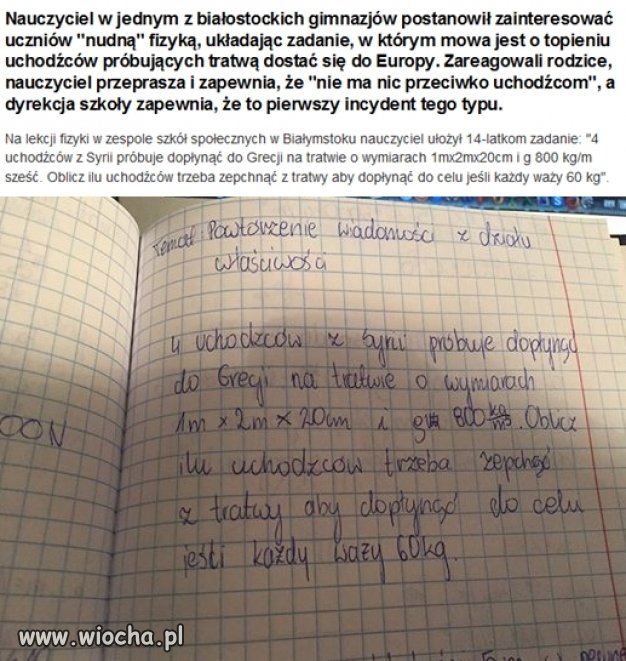 Nauczyciel w jednym z białostockich gimnazjów postanowił zainteresować
uczniów "nudną" fizyką, układając zadanie, w którym mowa jest o topieniu
uchodźców próbujących tratwą dostać się do Europy. Zareagowali rodzice,
nauczyciel przeprasza i zapewnia, że "nie ma nic przeciwko uchodźcom", a
dyrekcja szkoły zapewnia, że to pierwszy incydent tego typu.
Na lekcji fizyki w zespole szkół społecznych w Białymstoku nauczyciel ułożył 14-latkom zadanie: "4
uchodźców z Syrii próbuje dopłynąć do Grecji na tratwie o wymiarach 1mx2mx20cm i g 800 kg/m
sześć. Oblicz ilu uchodźców trzeba zepchnąć z tratwy aby dopłynąć do celu jeśli każdy waży 60 kg".
Temat: Powtórzenie wiadomości z działu
właściwości
4 uchodzców z Syrii próbuje dopłynąć
do Grecji na tratwie o wymiarach
1m x 2m x 20cm i g 800 kg/m3. Oblicz
ilu uchodzców trzeba zepchąć
z tratwy aby dopłynąć do celu
jeśli każdy waży 60kg.
OON
www.wiocha.pl